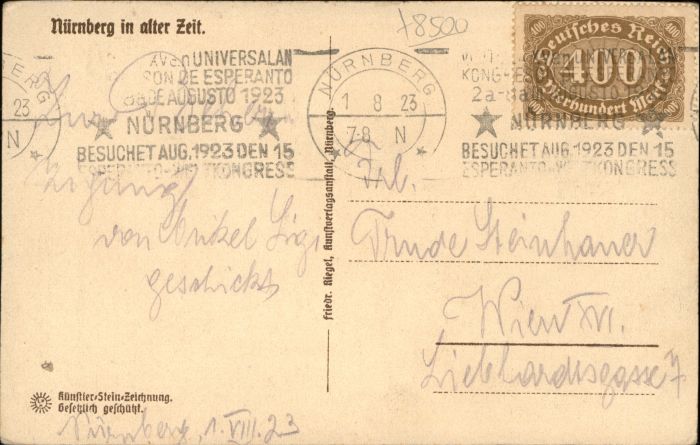 Nürnberg in alter Zeit.
78500
XVen UNIVERSALAN
KON DE ESPERANTO
DE AUGUSTO 1923
NÜRNBERG
BESUCHET AUG. 1923 DEN 15
ESPERANTO-WELTKONGRESS
NÜRNBERG
1 8 23
7-8 N
KONGRES
2a-
NÜRNBERG
BESUCHET AUG. 1923 DEN 15
ESPERANTO-WELTKONGRESS
Deutsches Reich
400
Vierhundert Mark
von Onkel
geschickt
Friedr. Riegel, Kunstverlagsanstalt, Nürnberg.
Frl.
Trude Steinhauer
Wien XVI.
Liebhardtsgasse 7
Künstler-Stein-Zeichnung.
Gesetzlich geschützt.
Nürnberg, 1. VIII. 23